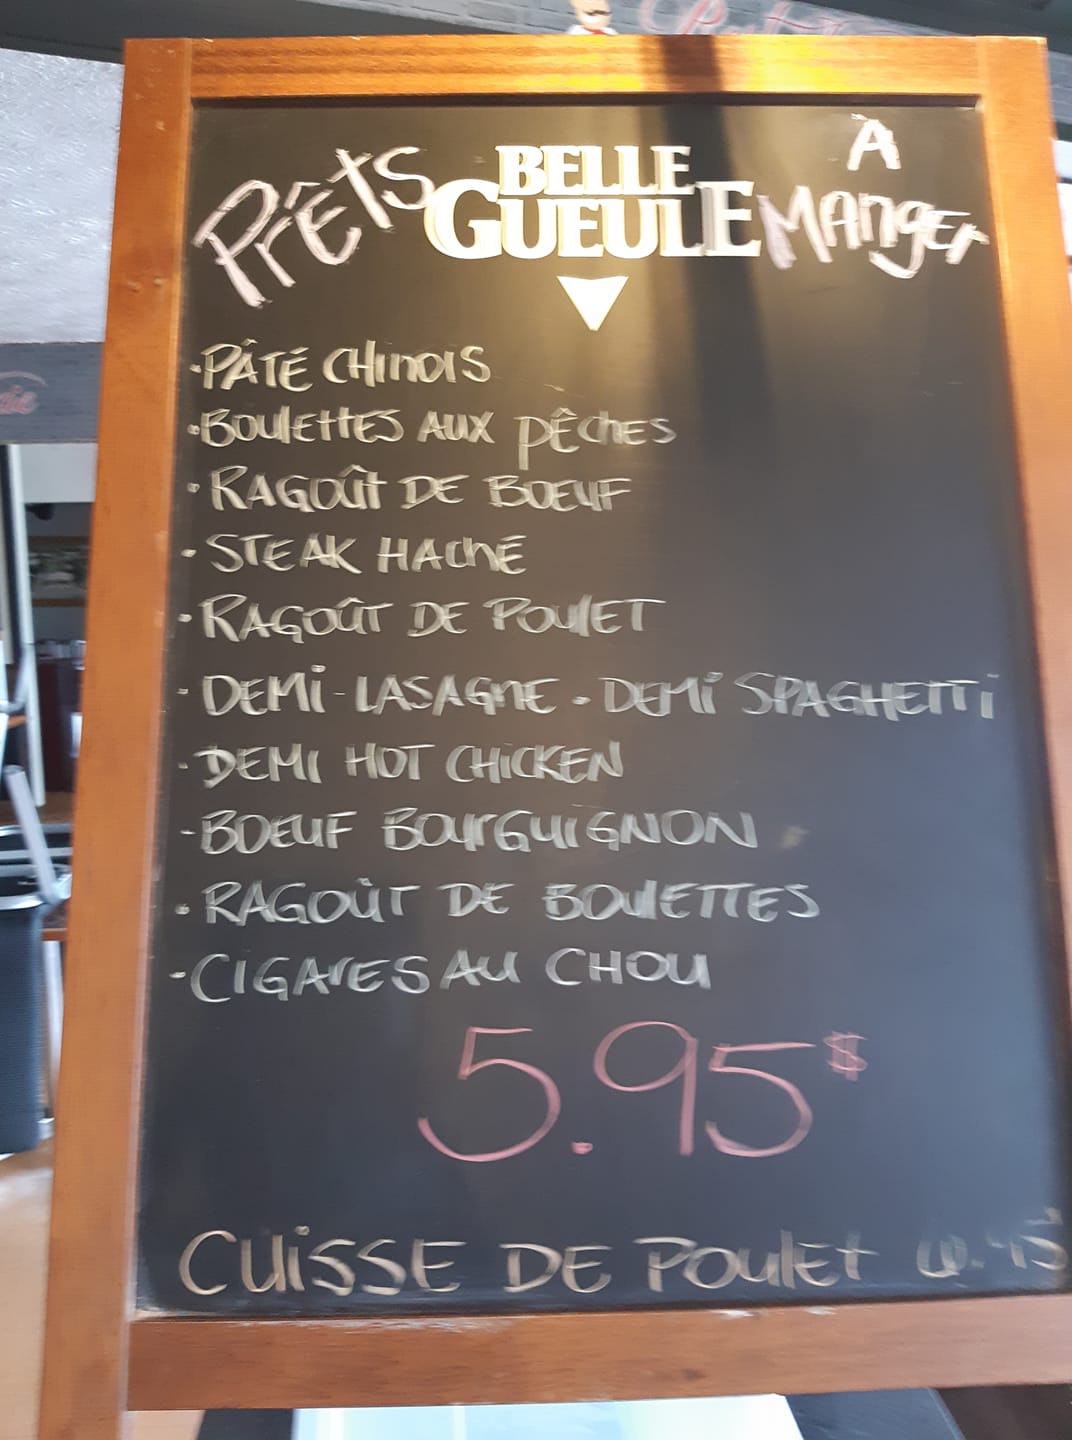 Prêts À Manger
BELLE
GUEULE
·PÂTÉ CHINOIS
·BOULETTES AUX PÊCHES
·RAGOÛT DE BOEUF
·STEAK HACHÉ
·RAGOÛT DE POULET
·DEMI-LASAGNE·DEMI SPAGHETTI
·DEMI HOT CHICKEN
-BOEUF BOURGUIGNON
·RAGOÙT DE BOULETTES
·CIGARES AU CHOU
5.95$
CUISSE DE POULET